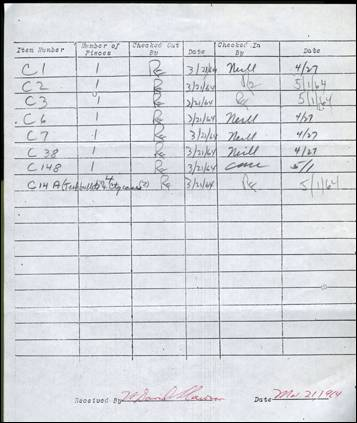 Item Number Number of Pieces Checked Out By Date Checked In By Date
C1 1 3/21/64 Neill 4/27
C2 1 3/21/64 5/1/64
C3 1 3/21/64 5/1/64
C6 1 3/21/64 Neill 4/27
C7 1 3/21/64 Neill 4/27
C38 1 3/21/64 Neill 4/27
C148 1 3/21/64 5/1
C14 A (Test bullets & 3/21/64 5/1/64
Received By Date Mar 21, 1964